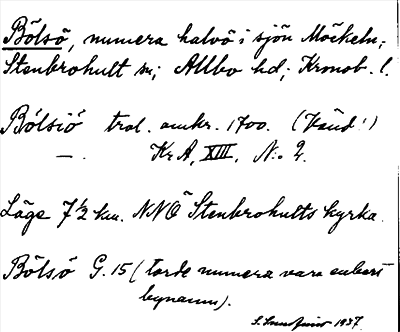 Bölsö, numera halvö i sjön Möckeln,
Stenbrohult sn; Allbo hd; Kronob. l.
Bölsiö trol. omkr. 1700. (Känd!)
— . Kr A, XIII, N:o 2.
Läge 7½ km. NNÖ Stenbrohults kyrka.
Bölsö G. 15 (torde numera vara enbart
bynamn).
1937.